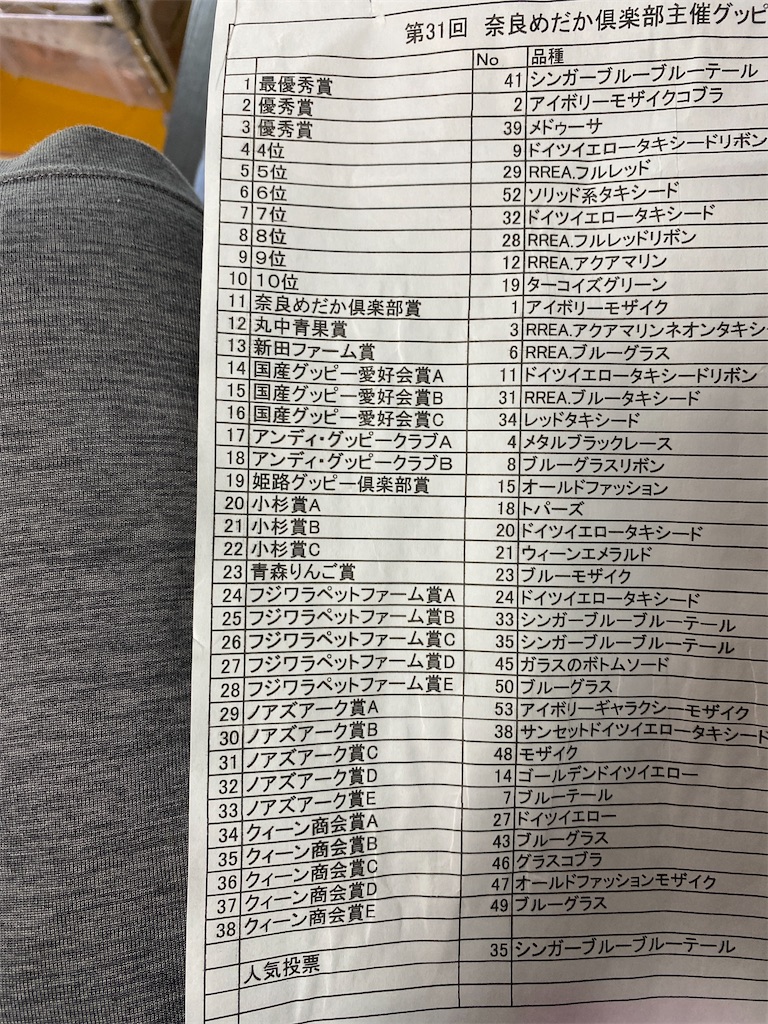 第31回 奈良めだか倶楽部主催グッピ
No 品種
1 最優秀賞 41 シンガーブルーブルーテール
2 優秀賞 2 アイボリーモザイクコブラ
3 優秀賞 39 メドゥーサ
4 4位 9 ドイツイエロータキシードリボン
5 5位 29 RREA.フルレッド
6 6位 52 ソリッド系タキシード
7 7位 32 ドイツイエロータキシード
8 8位 28 RREA.フルレッドリボン
9 9位 12 RREA.アクアマリン
10 10位 19 ターコイズグリーン
11 奈良めだか倶楽部賞 1 アイボリーモザイク
12 丸中青果賞 3 RREA.アクアマリンネオンタキシ
13 新田ファーム賞 6 RREA.ブルーグラス
14 国産グッピー愛好会賞A 11 ドイツイエロータキシードリボン
15 国産グッピー愛好会賞B 31 RREA.ブルータキシード
16 国産グッピー愛好会賞C 34 レッドタキシード
17 アンディ・グッピークラブA 4 メタルブラックレース
18 アンディ・グッピークラブB 8 ブルーグラスリボン
19 姫路グッピー倶楽部賞 15 オールドファッション
20 小杉賞A 18 トパーズ
21 小杉賞B 20 ドイツイエロータキシード
22 小杉賞C 21 ウィーンエメラルド
23 青森りんご賞 23 ブルーモザイク
24 フジワラペットファーム賞A 24 ドイツイエロータキシード
25 フジワラペットファーム賞B 33 シンガーブルーブルーテール
26 フジワラペットファーム賞C 35 シンガーブルーブルーテール
27 フジワラペットファーム賞D 45 ガラスのボトムソード
28 フジワラペットファーム賞E 50 ブルーグラス
29 ノアズアーク賞A 53 アイボリーギャラクシーモザイク
30 ノアズアーク賞B 38 サンセットドイツイエロータキシード
31 ノアズアーク賞C 48 モザイク
32 ノアズアーク賞D 14 ゴールデンドイツイエロー
33 ノアズアーク賞E 7 ブルーテール
34 クィーン商会賞A 27 ドイツイエロー
35 クィーン商会賞B 43 ブルーグラス
36 クィーン商会賞C 46 グラスコブラ
37 クィーン商会賞D 47 オールドファッションモザイク
38 クィーン商会賞E 49 ブルーグラス
人気投票 35 シンガーブルーブルーテール